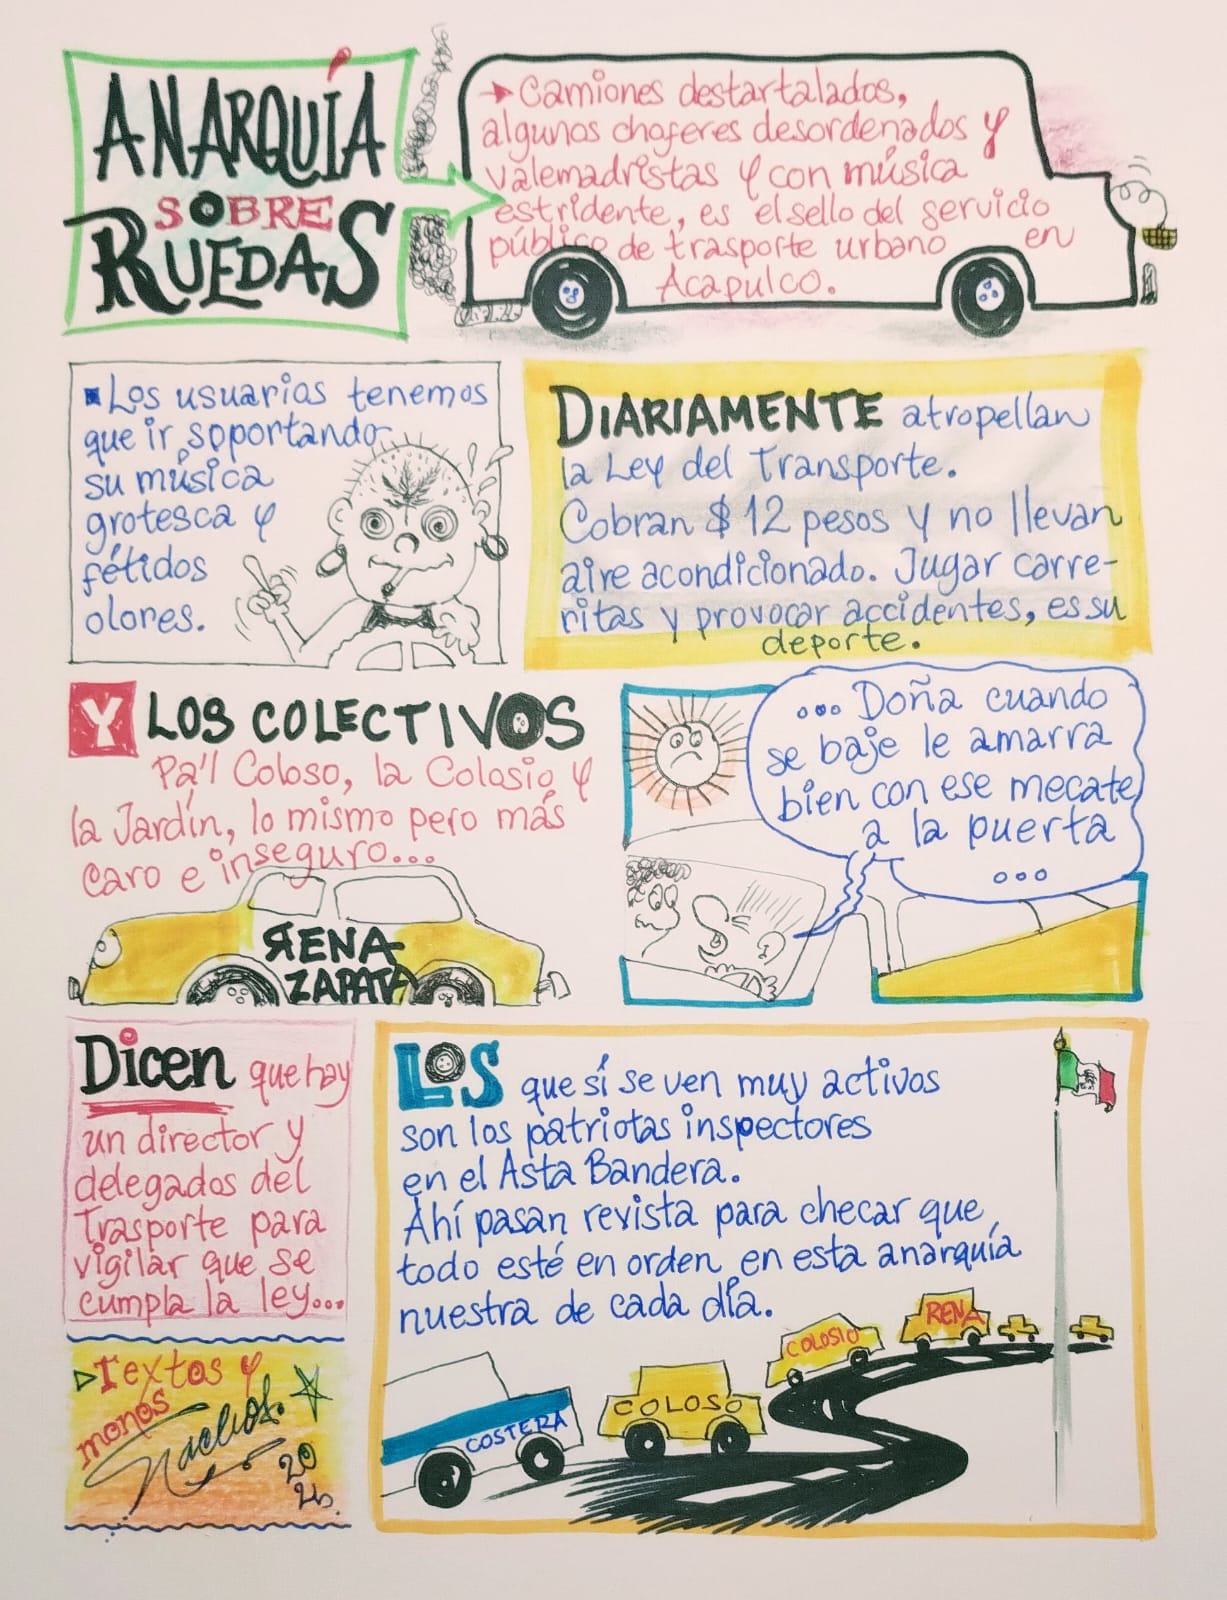 ANARQUÍA
SOBRE
RUEDAS
Camiones destartalados,
algunos choferes desordenados y
valemadristas y con música
estridente, es el sello del servicio
público de trasporte urbano en
Acapulco.
Los usuarios tenemos
que ir soportando
su música
grotesca y
fétidos
olores.
DIARIAMENTE atropellan
la Ley del Transporte.
Cobran $12 pesos y no llevan
aire acondicionado. Jugar carre-
ritas y provocar accidentes, es su
deporte.
Y LOS COLECTIVOS
Pa'l Coloso, la Colosio y
la Jardín, lo mismo pero más
caro e inseguro...
RENA
ZAPATA
... Doña cuando
se baje le amarra
bien con ese mecate
a la puerta
...
Dicen que hay
un director y
delegados del
Trasporte para
vigilar que se
cumpla la ley...
LOS que sí se ven muy activos
son los patriotas inspectores
en el Asta Bandera.
Ahí pasan revista para checar que
todo esté en orden en esta anarquía
nuestra de cada día.
COSTERA
COLOSO
COLOSIO
RENA
Textos y
monos
Nachos.
20